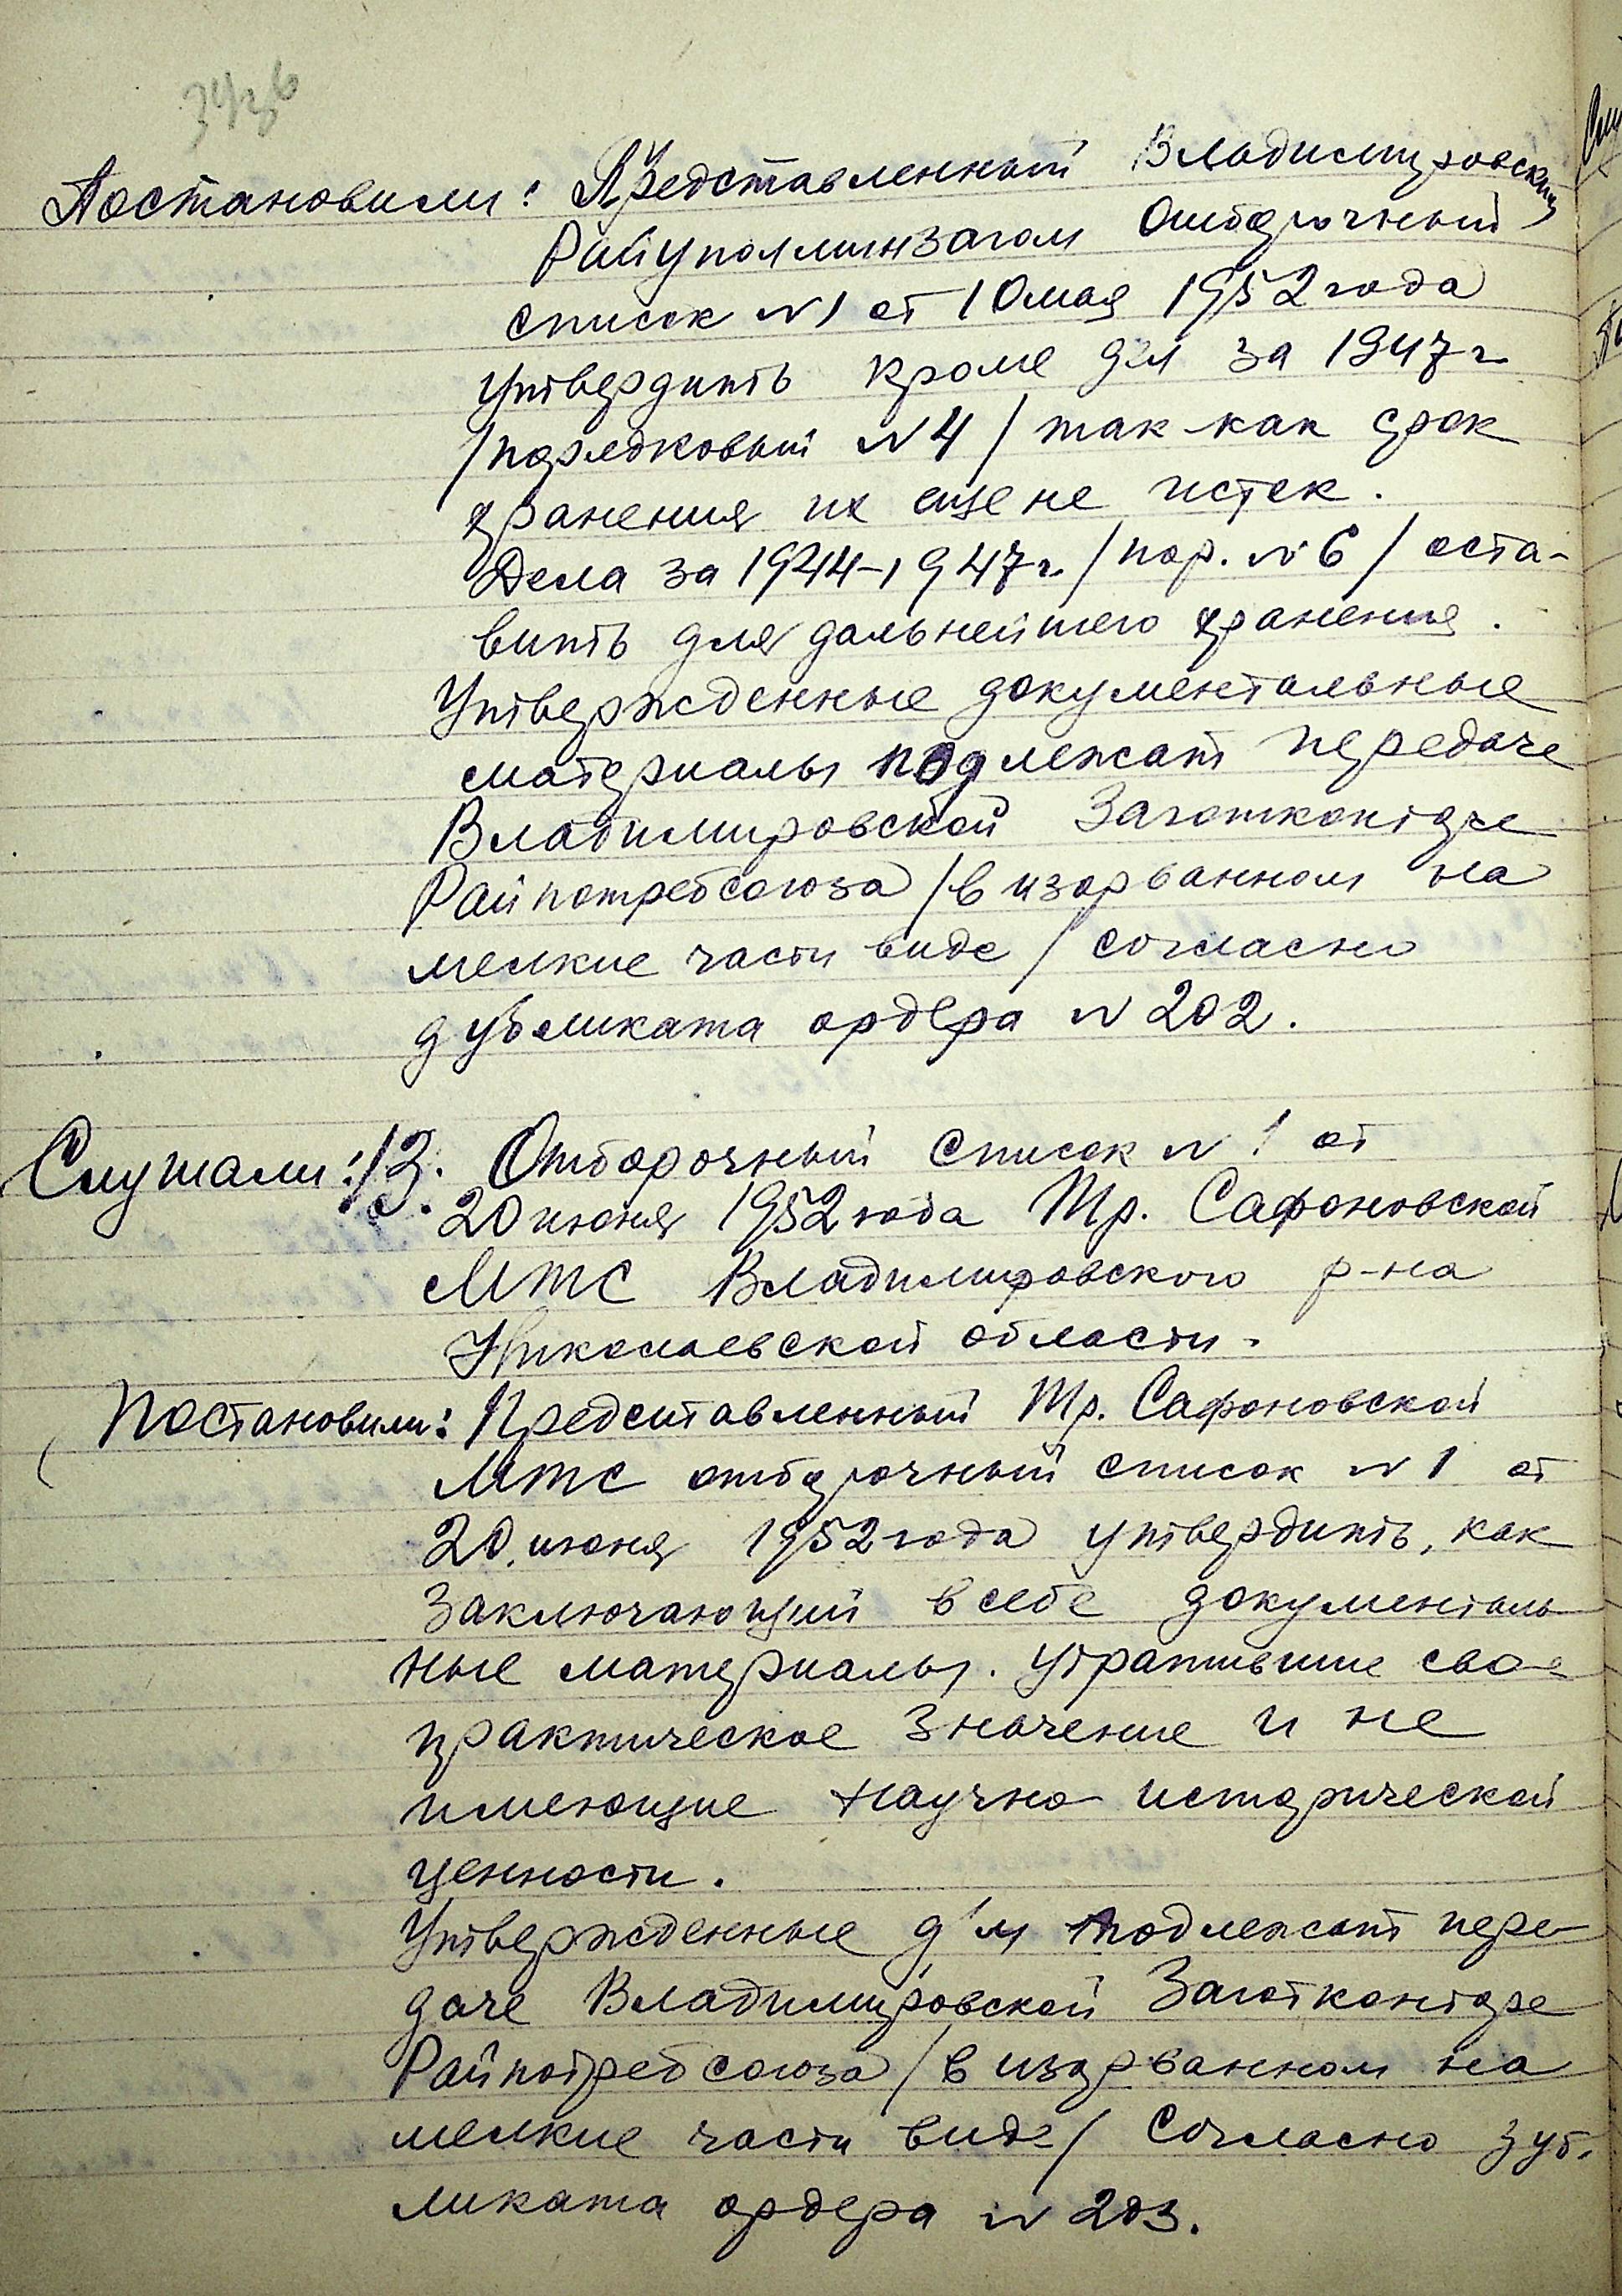 Постановили: Представленный Владимировским
Райуполминзагом отборочный
список №1 от 10 мая 1952 года
утвердить кроме д/м за 1947 г
/порядковый №4/ так как срок
хранения их еще не истек.
Дела за 1944-1947 г. /пор. №6/ оста-
вить для дальнейшего хранения.
Утвержденные документальные
материалы подлежат передаче
Владимировской Заготконторе
Райпотребсоюза /в изорванном на
мелкие части виде/ согласно
дубликата ордера №202.
Слушали: 13. Отборочный список №1 от
20 июня 1952 года Тр. Сафоновской
МТС Владимировского р-на
Николаевской области.
Постановили: Представленный Тр. Сафоновской
МТС отборочный список №1 от
20 июня 1952 года утвердить, как
заключающий в себе документаль
ные материалы. утратившие свое
практическое значение и не
имеющие научно исторической
ценности.
Утвержденные д/м подлежат пере-
даче Владимировской Заготконторе
Райпотребсоюза /в изорванном на
мелкие части виде/ согласно дуб.
ликата ордера №203.